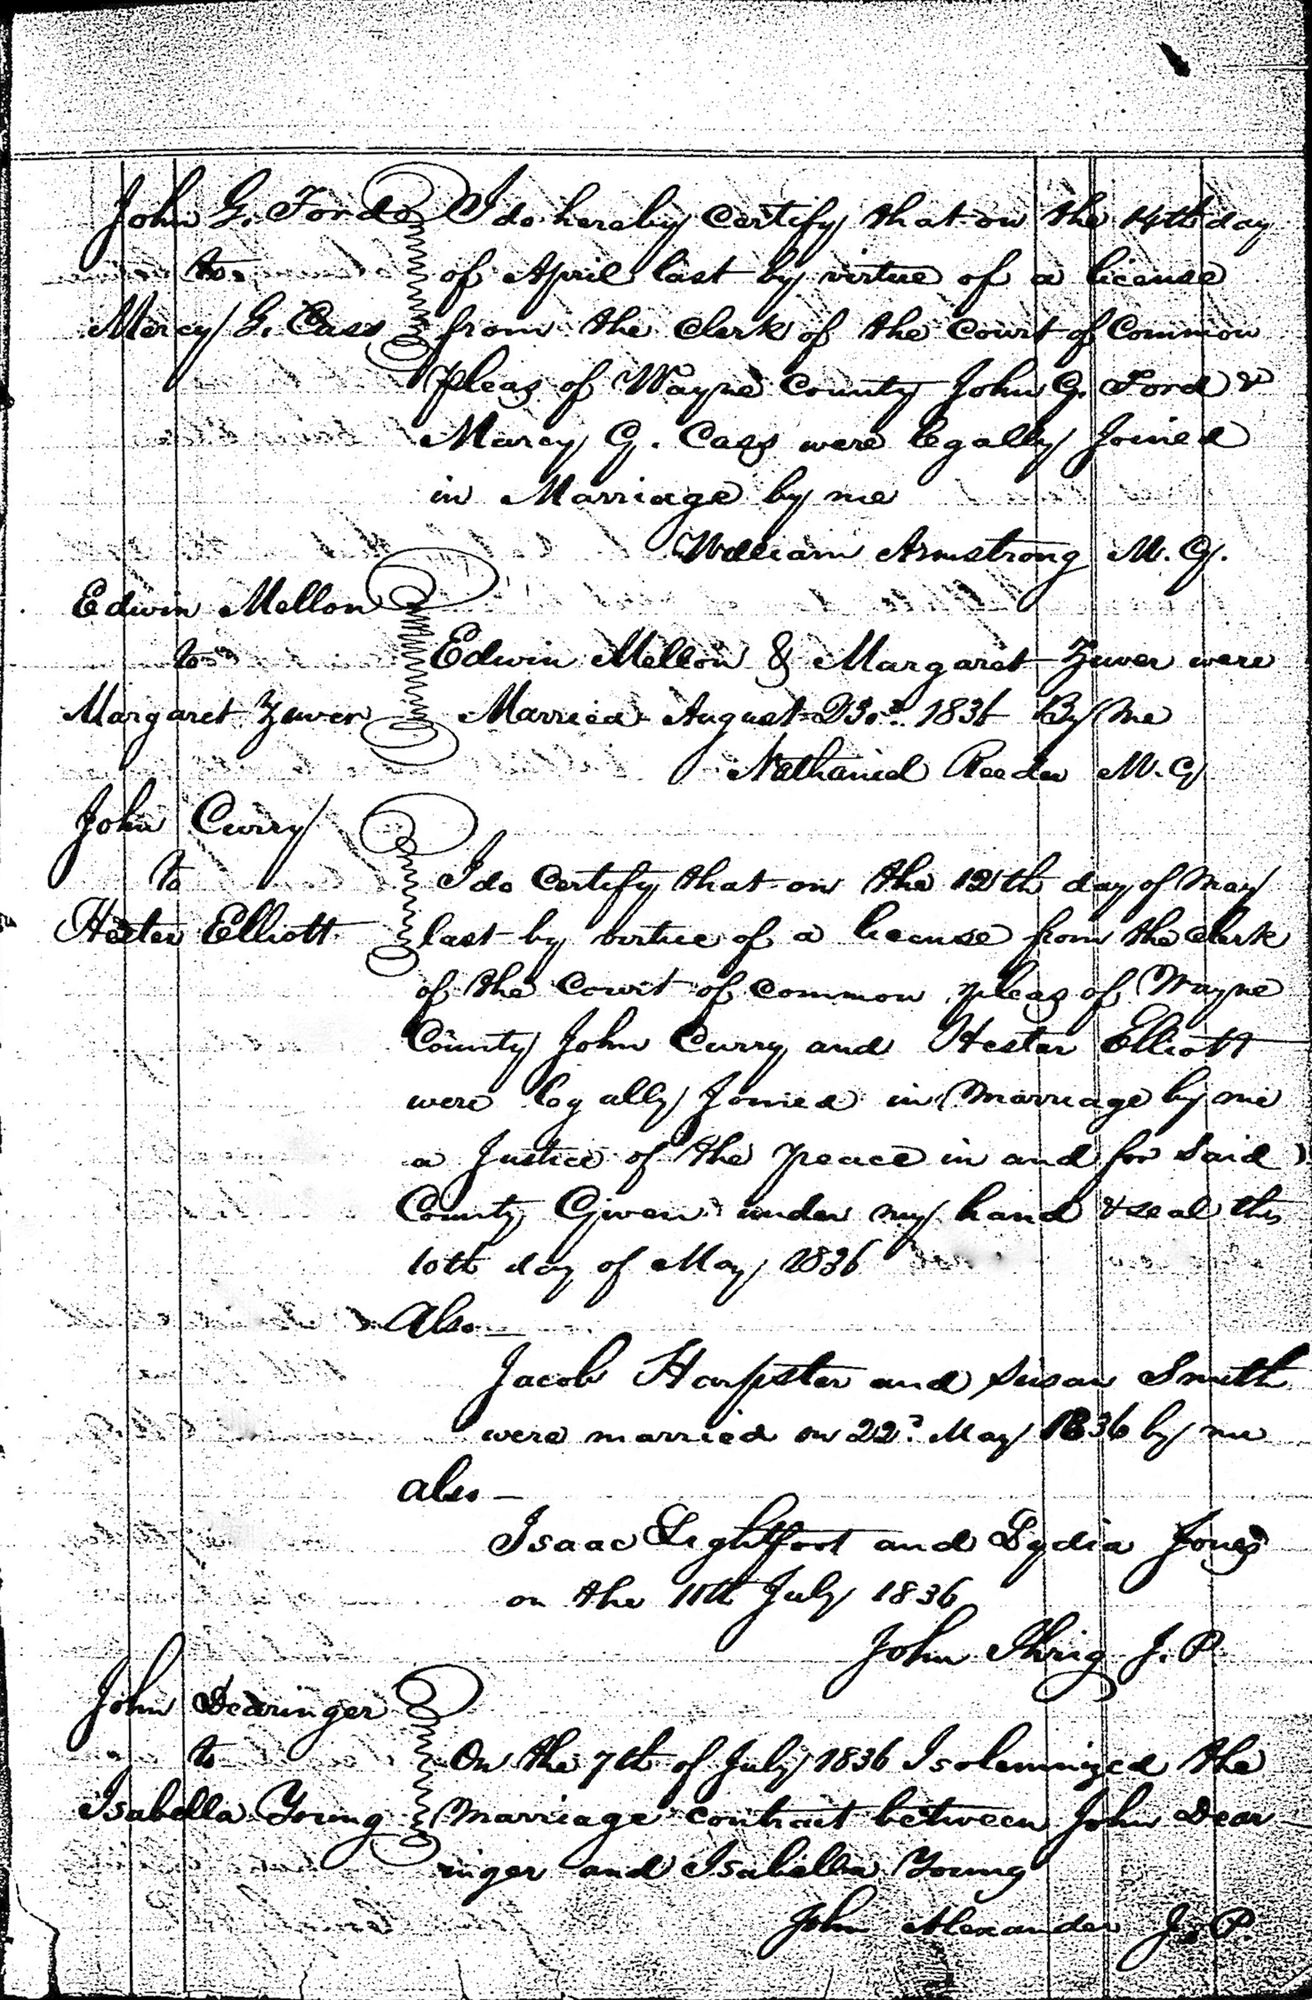 John G. Ford
to
Mercy G. Cass
I do hereby certify that on the 14th day
of April last by virtue of a license
from the clerk of the court of Common
pleas of Wayne County John G. Ford &
Marcy G. Cass were legally Joined
in Marriage by me
William Armstrong M. G.
Edwin Mellon
to
Margaret Zuver
Edwin Mellon & Margaret Zuver were
Married August 23.d 1836 By Me
Nathaniel Reeder M. G
John Curry
to
Hester Elliott
I do Certify that on the 12th day of May
last by virtue of a license from the clerk
of the Court of common pleas of Wayne
County John Curry and Hester Elliott
were legally Joined in Marriage by me
a Justice of the peace in and for said
County Given under my hand & seal this
10th day of May 1836
Also
Jacob Harpster and Susan Smith
were married on 22.d May 1836 by me
also
Isaac Lightfoot and Lydia Jones
on the 11th July 1836
John Ihrig J. P.
John Dearinger
to
Isabella Young
On the 7th of July 1836 I solemnized the
Marriage contract between John Dear
inger and Isabella Young
John Alexander J. P.